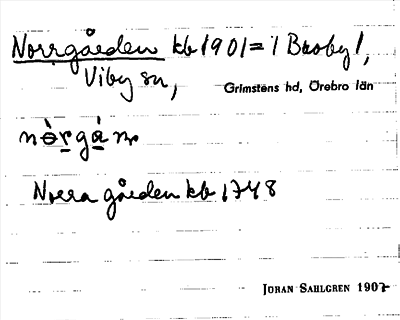 Norrgården kb 1901 = 1 Broby 1,
Viby sn,
Grimstens hd, Örebro län
Norra gården kb 1748
JOHAN SAHLGREN 1907